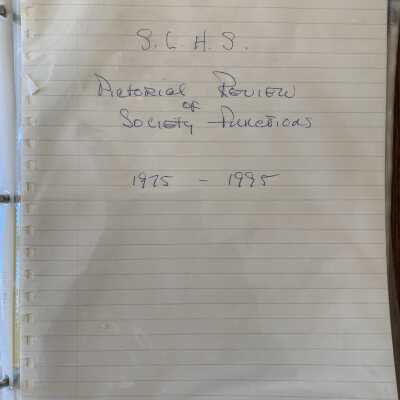 S. L. H. S.
Pictorial Review
of
Society Functions
1975 - 1995